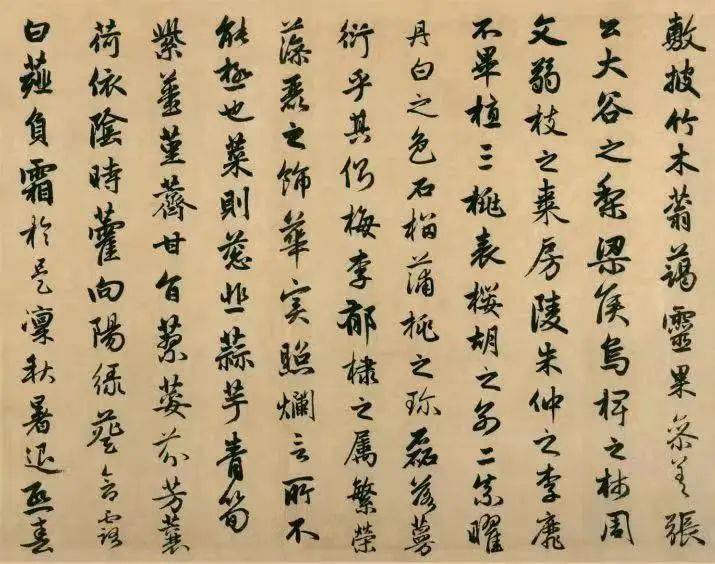 敷披竹木蓊藹靈果參差張
公大谷之梨梁侯烏椑之柿周
文弱枝之棗房陵朱仲之李靡
不畢植三桃表櫻胡之別二柰曜
丹白之色石榴蒲桃之珍磊落蔓
衍乎其側梅李郁棣之属繁榮
藻麗之飾華实照爛言所不
能極也菜則葱韭蒜芋青筍
紫薑堇薺甘旨蓼荾芬芳蘘
荷依陰時藿向陽緑葵含露
白薤負霜於是凜秋暑退熙春